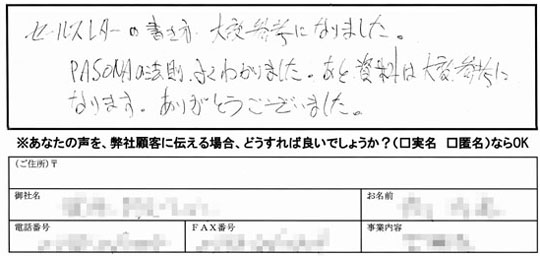 セールスレターの書き方 大変参考になりました。
PASONAの法則、よくわかりました。あと資料は大変参考に
なります。ありがとうございました。
※あなたの声を、弊社顧客に伝える場合、どうすれば良いでしょうか？(□実名 □匿名)ならOK
(ご住所)〒
御社名 お名前
電話番号 FAX番号 事業内容